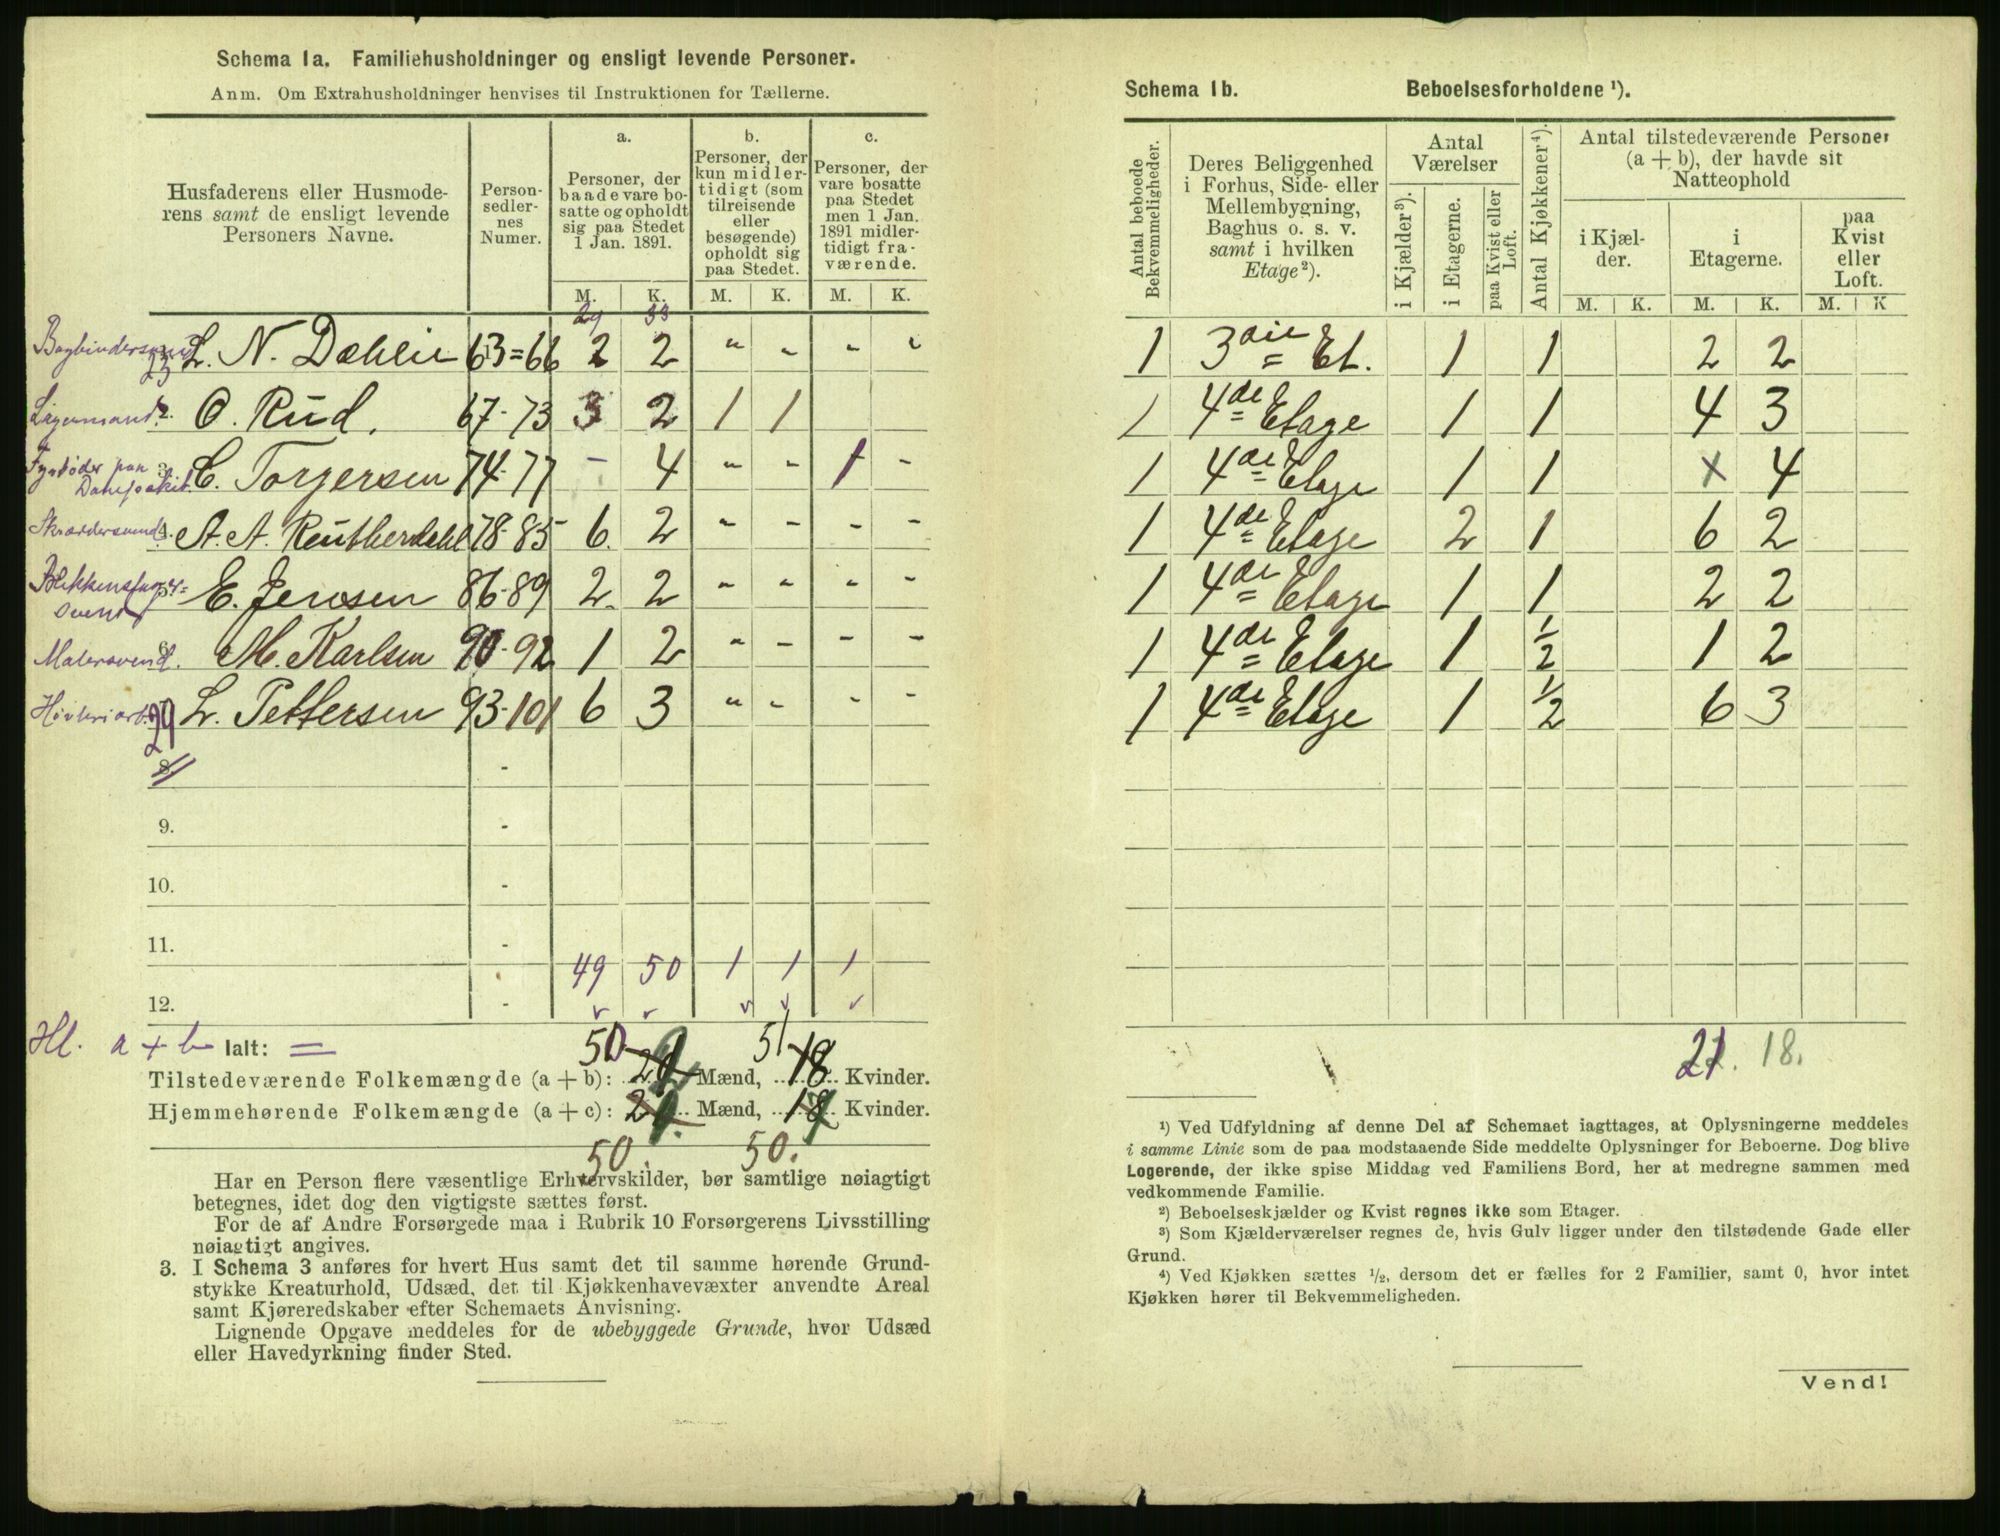 Schema 1a. Familiehusholdninger og ensligt levende Personer.
Anm. Om Extrahusholdninger henvises til Instruktionen for Tællerne.
Husfaderens eller Husmoderens samt de ensligt levende Personers Navne.
Person-sedlernes Numer.
a.
Personer, der baade vare bosatte og opholdt sig paa Stedet 1 Jan. 1891.
b.
Personer, der kun midlertidigt (som tilreisende eller besøgende) opholdt sig paa Stedet.
c.
Personer, der vare bosatte paa Stedet men 1 Jan. 1891 midlertidigt fraværende.
M. K. M. K. M. K.
29 33
L. N. Dæhlie 63=66 2 2 " " " "
Lagermand 2. O. Rud. 67-73 3 2 1 1
3. C. Torgersen 74-77 - 4 " " 1 -
Skræddersvend A. A. Reutherdahl 78-85 6. 2 " - - -
E. Jensen 86-89 2. 2 " " - -
Malersvend. 6. M. Karlsen 90-92 1 2 " - - -
L. Pettersen 93-101 6 3 " " - -
29
8.
9. -
10. -
11. -
49 50 1 1 1
12. -
Hl. a + b Ialt: =
50 51
Tilstedeværende Folkemængde (a + b): Mænd, 18 Kvinder.
Hjemmehørende Folkemængde (a + c): Mænd, 18 Kvinder.
50. 50.
Har en Person flere væsentlige Erhvervskilder, bør samtlige nøiagtigt
betegnes, idet dog den vigtigste sættes først.
For de af Andre Forsørgede maa i Rubrik 10 Forsørgerens Livsstilling
nøiagtigt angives.
3. I Schema 3 anføres for hvert Hus samt det til samme hørende Grund-
stykke Kreaturhold, Udsæd, det til Kjøkkenhavevæxter anvendte Areal
samt Kjøreredskaber efter Schemaets Anvisning.
Lignende Opgave meddeles for de ubebyggede Grunde, hvor Udsæd
eller Havedyrkning finder Sted.
Schema 1b. Beboelsesforholdene ¹).
Antal beboede Bekvemmeligheder.
Deres Beliggenhed i Forhus, Side- eller Mellembygning, Baghus o. s. v. samt i hvilken Etage ²).
Antal Værelser
i Kjælder ³).
i Etagerne.
paa Kvist eller Loft.
Antal Kjøkkener ⁴).
Antal tilstedeværende Personer (a + b), der havde sit Natteophold
i Kjælder.
i Etagerne.
paa Kvist eller Loft.
M. K. M. K. M. K
1 3die Et. 1 1 2 2
1 4de Etage 1 1 4 3
1 4de Etage 1 1 x 4
1 4de Etage 2 1 6 2
1 4de Etage 1 1 2 2
1 4de Etage 1 ½ 1 2
1 4de Etage 1 ½ 6 3
21 18.
¹) Ved Udfyldning af denne Del af Schemaet iagttages, at Oplysningerne meddeles
i samme Linie som de paa modstaaende Side meddelte Oplysninger for Beboerne. Dog blive
Logerende, der ikke spise Middag ved Familiens Bord, her at medregne sammen med
vedkommende Familie.
²) Beboelseskjælder og Kvist regnes ikke som Etager.
³) Som Kjælderværelser regnes de, hvis Gulv ligger under den tilstødende Gade eller
Grund.
⁴) Ved Kjøkken sættes ½, dersom det er fælles for 2 Familier, samt 0, hvor intet
Kjøkken hører til Bekvemmeligheden.
Vend!